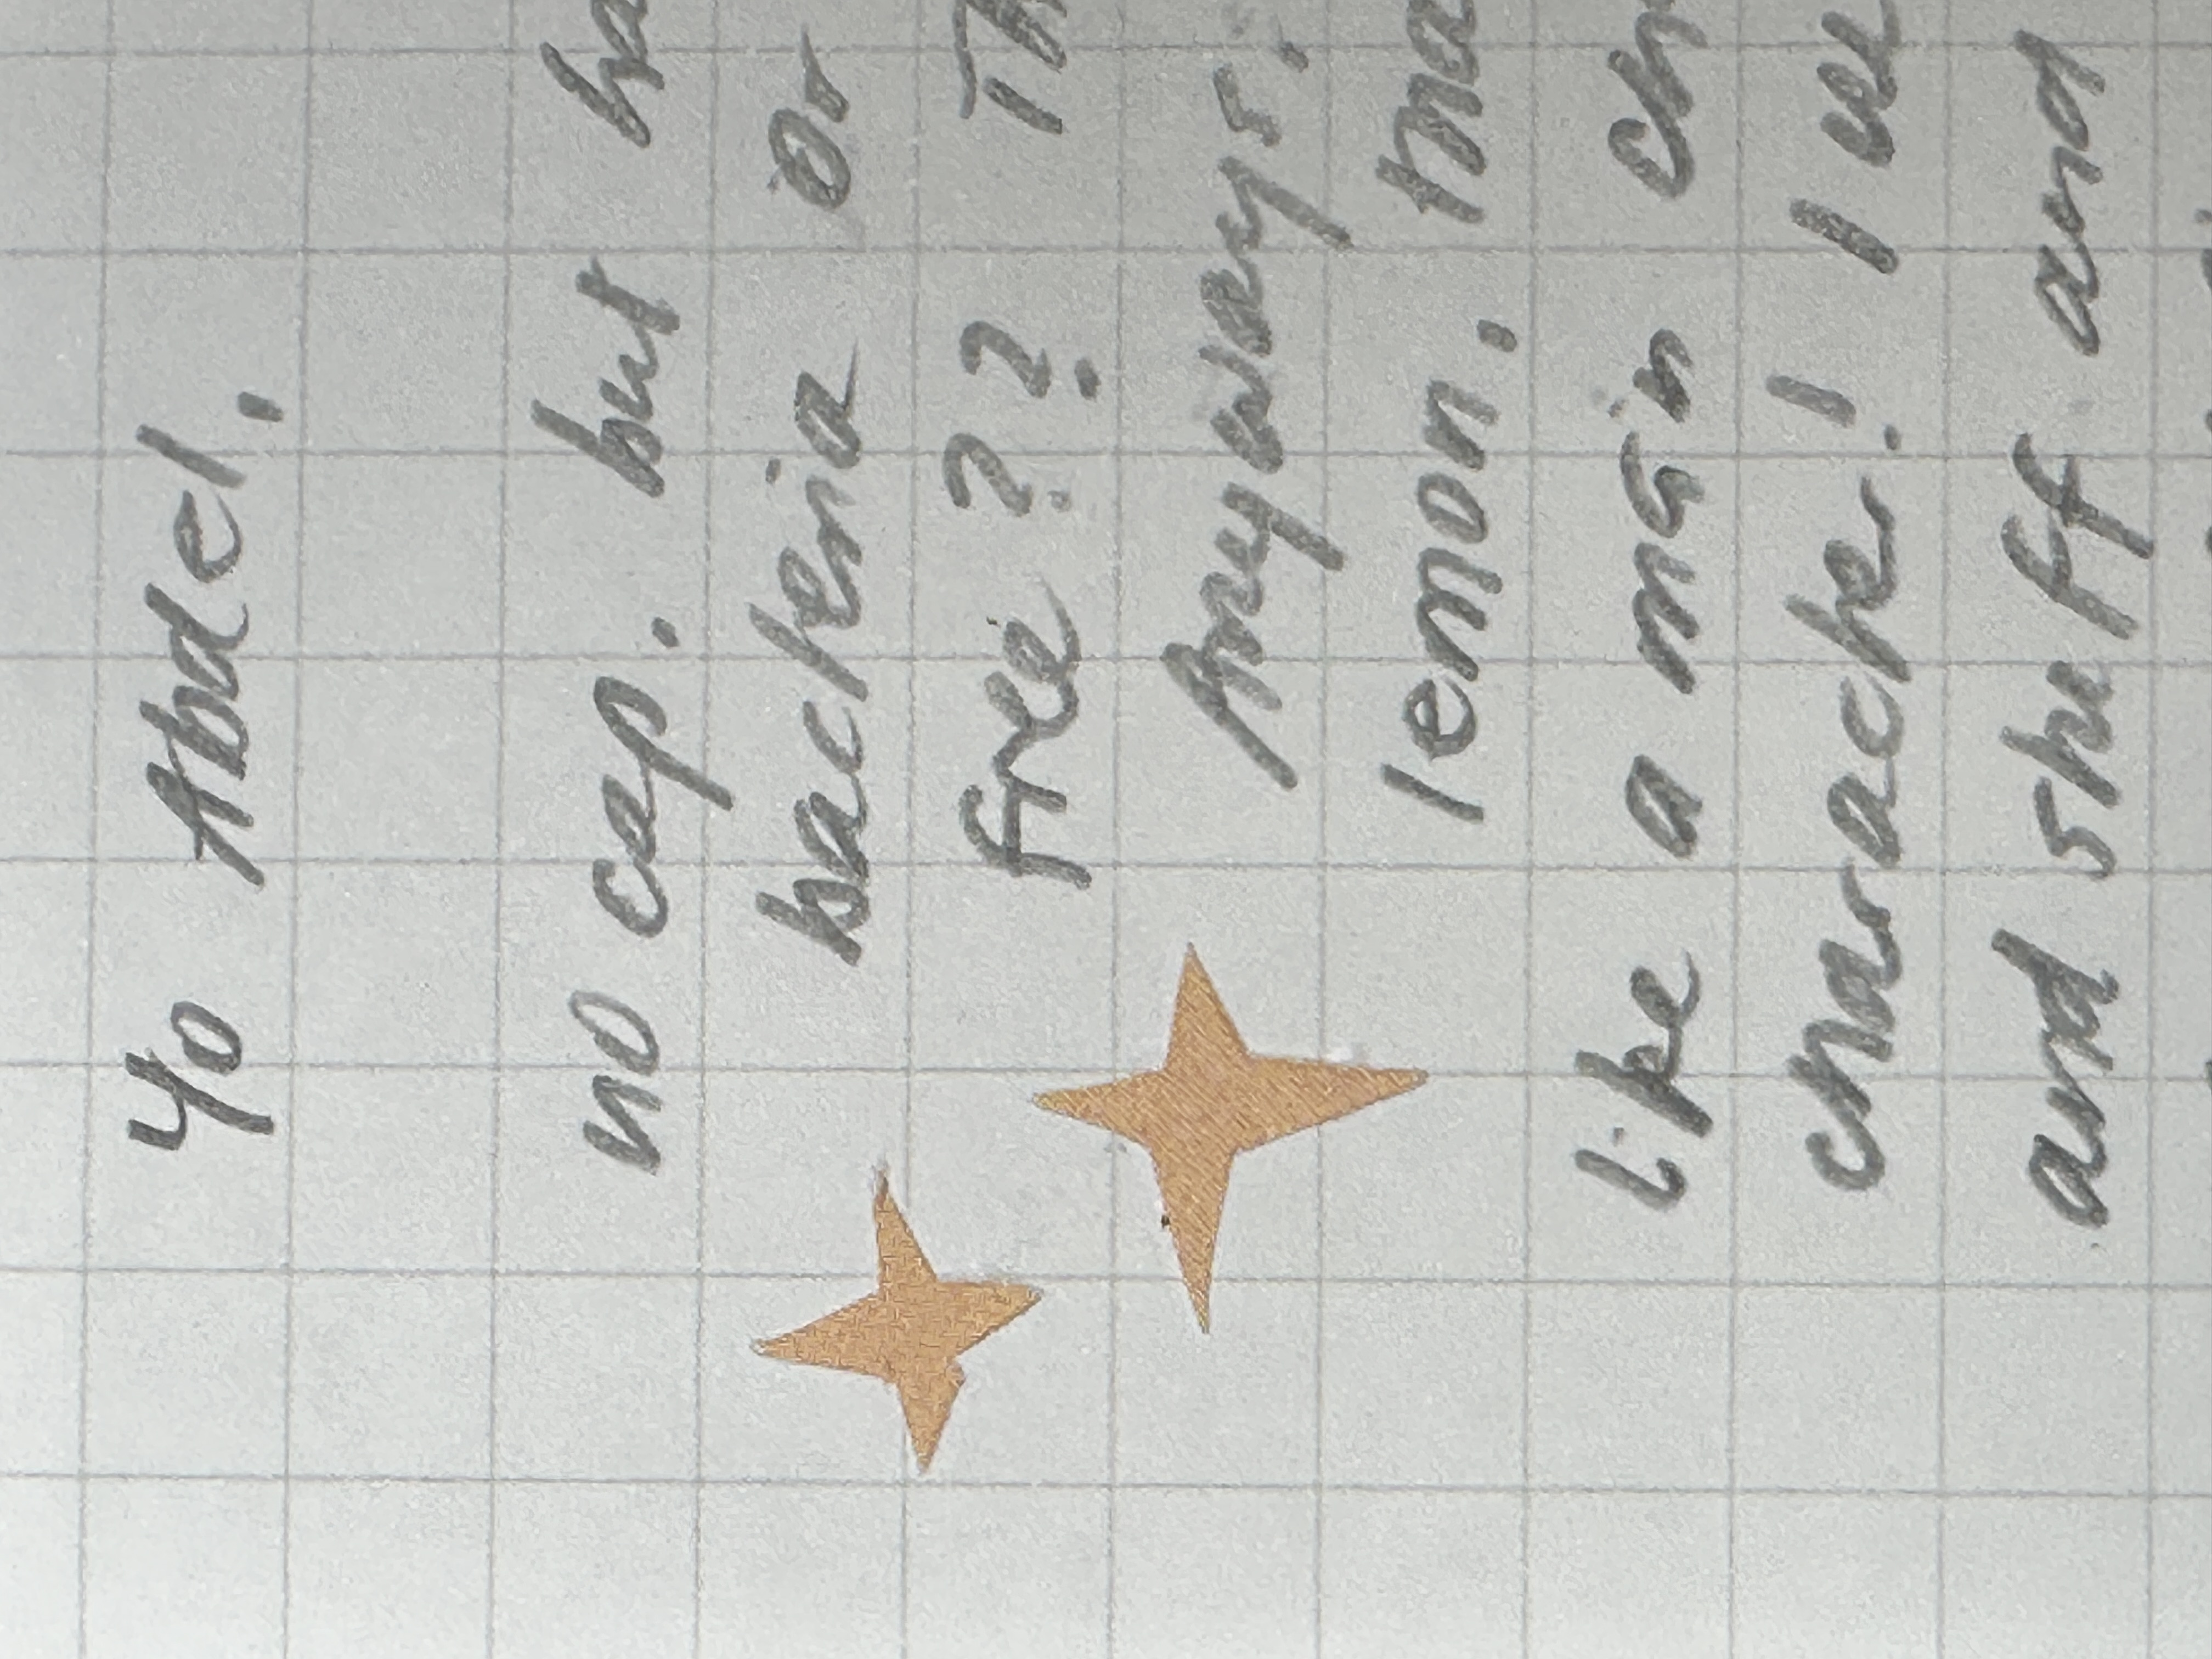 Yo Abdel,
no cap. but ha
bacteria or
free?? Th
Anyways,
lemon, tha
like a main ch
character! I we
and stuff and